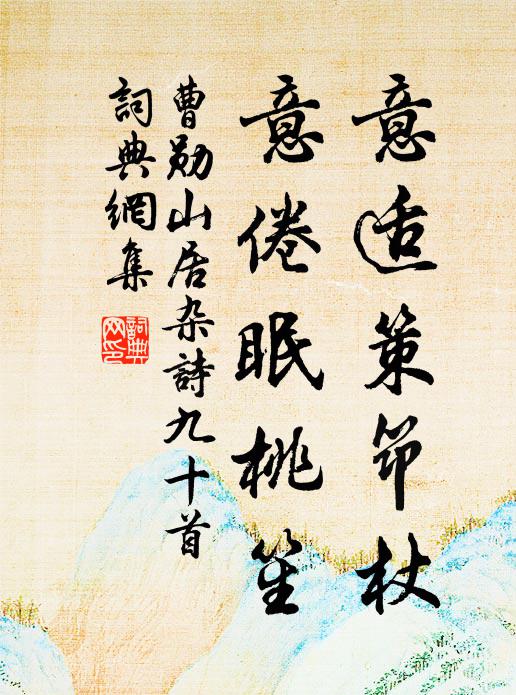 意适策筇杖
意倦眠桃笙
曹勋山居杂詩九十首
詞典網集
詞典網印